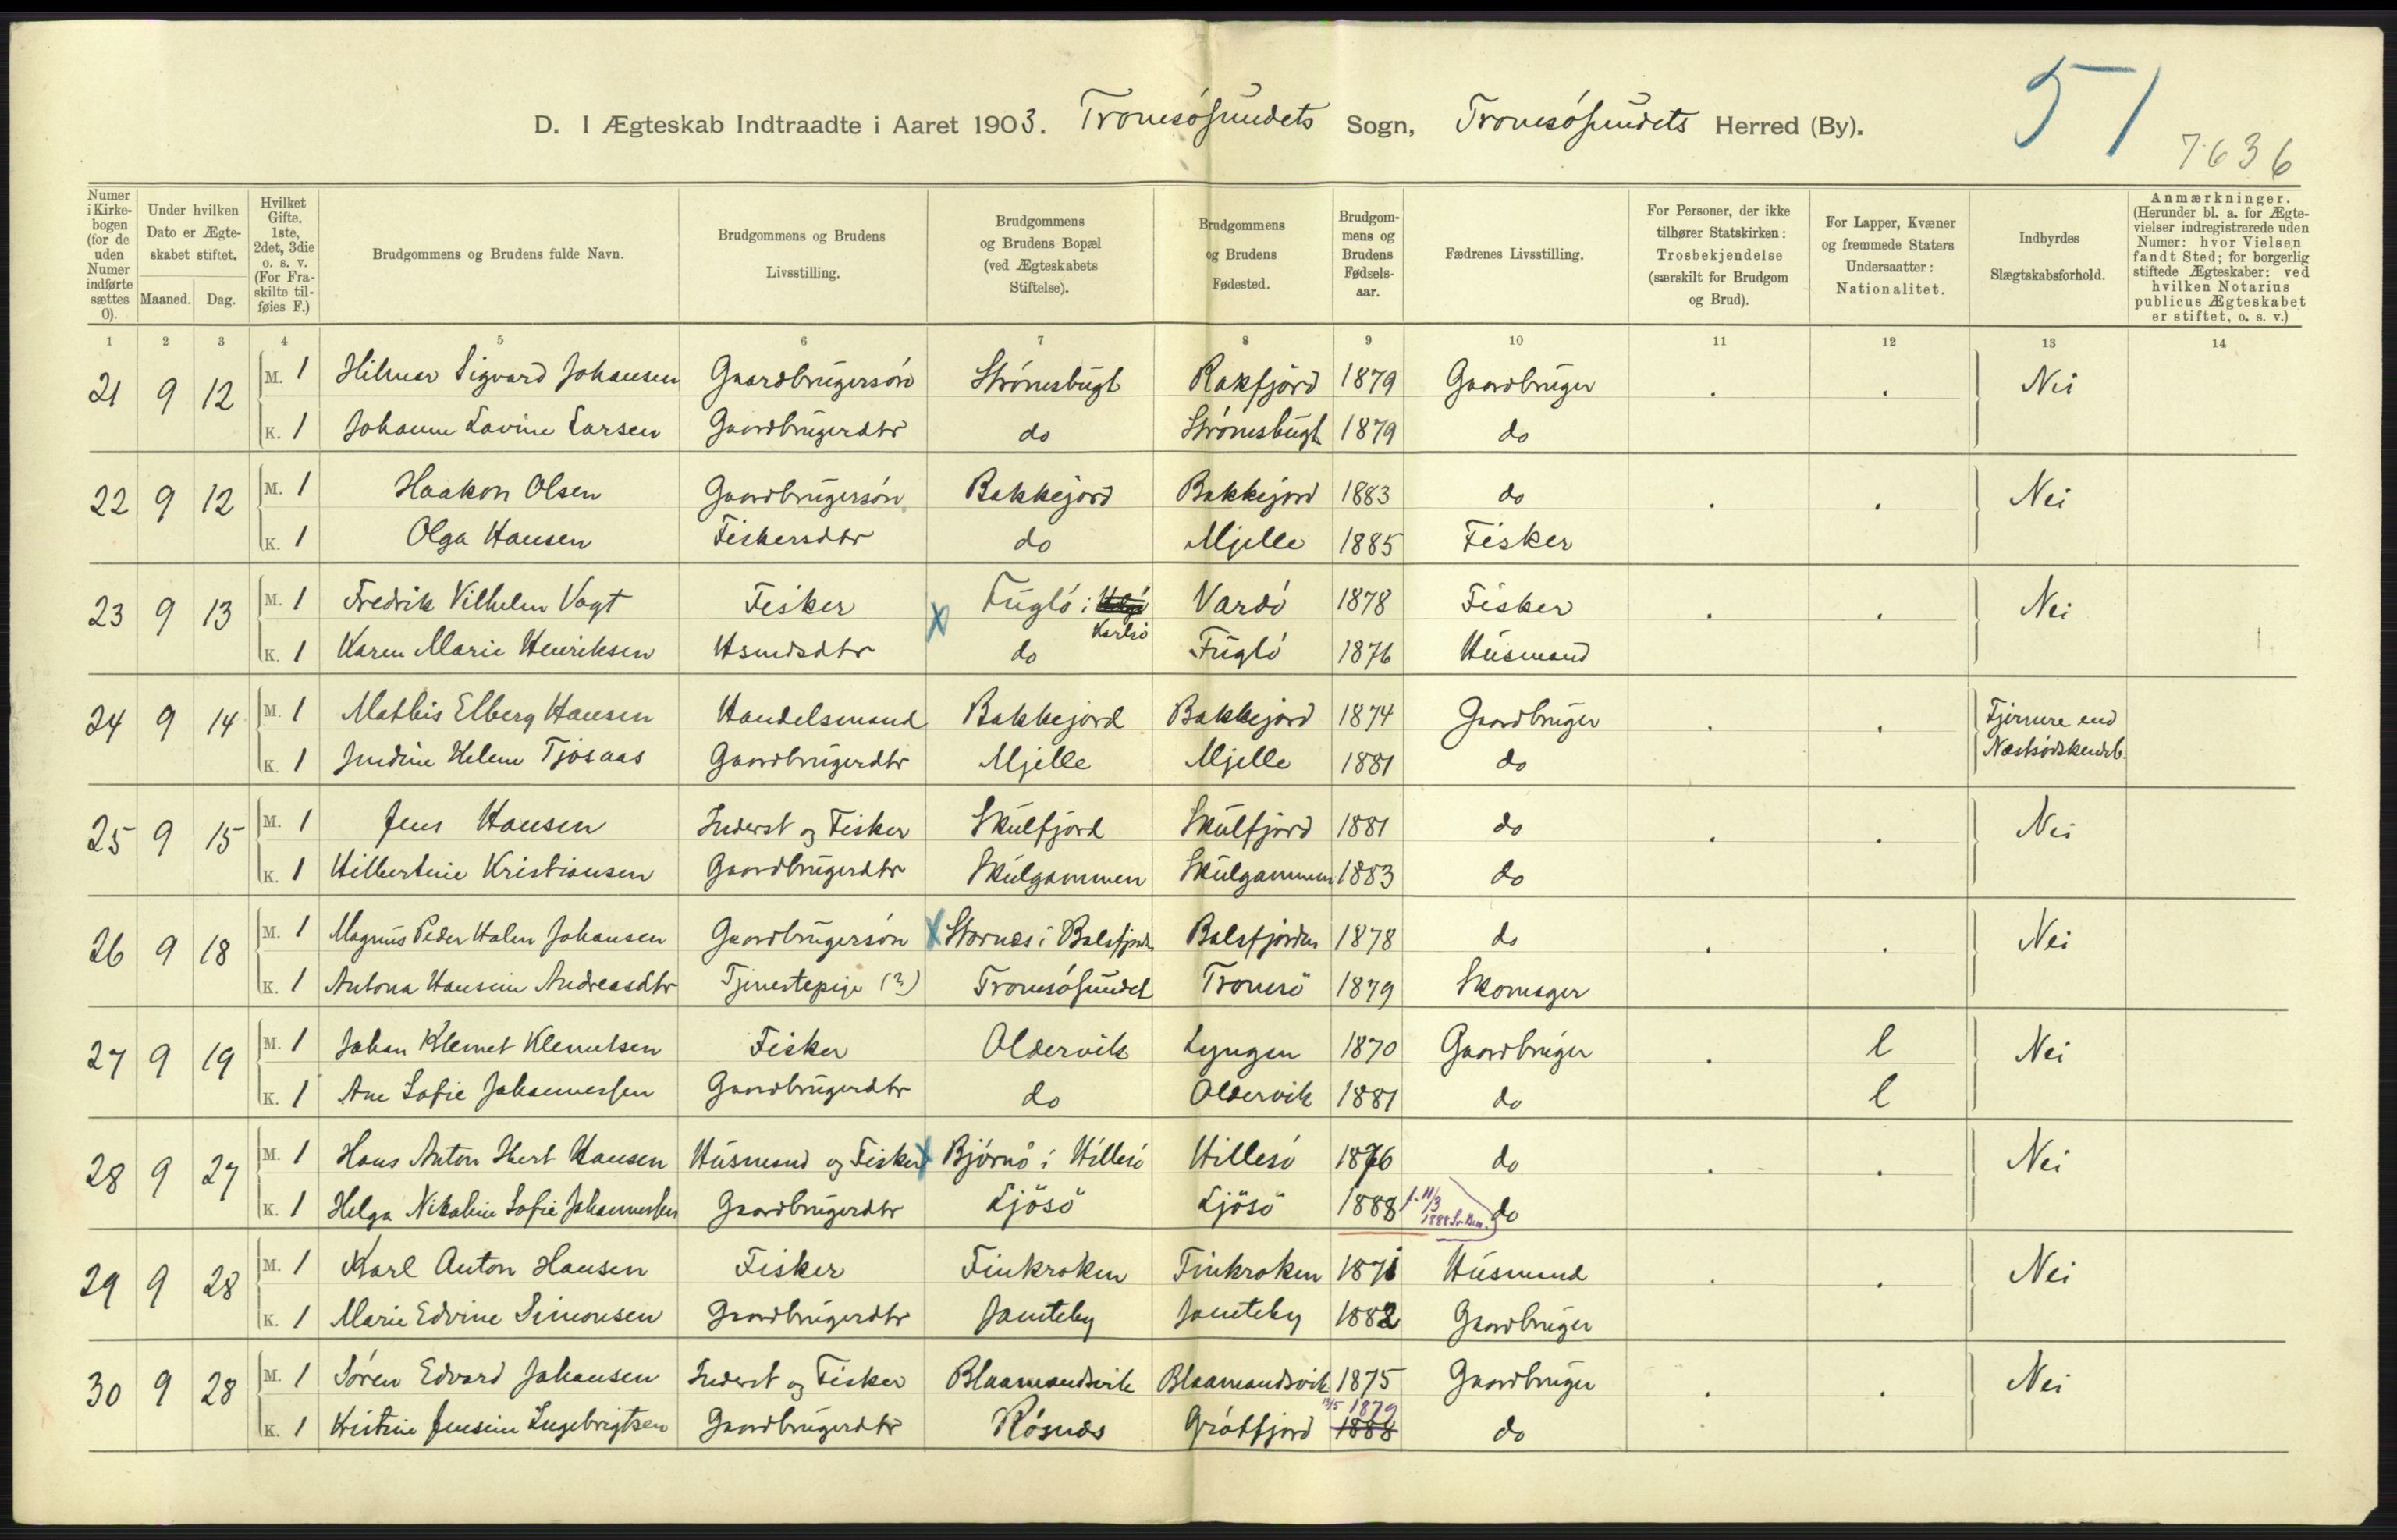 51
7636
D. I Ægteskab Indtraadte i Aaret 1903. Tromsøsundets Sogn, Tromsøsundets Herred (By).
Numer i Kirkebogen (for de uden Numer indførte sættes 0).
Under hvilken Dato er Ægteskabet stiftet.
Maaned. Dag.
Hvilket Gifte. 1ste, 2det, 3die o. s. v. (For Fraskilte tilføies F.)
Brudgommens og Brudens fulde Navn.
Brudgommens og Brudens Livsstilling.
Brudgommens og Brudens Bopæl (ved Ægteskabets Stiftelse).
Brudgommens og Brudens Fødested.
Brudgommens og Brudens Fødselsaar.
Fædrenes Livsstilling.
For Personer, der ikke tilhører Statskirken: Trosbekjendelse (særskilt for Brudgom og Brud).
For Lapper, Kvæner og fremmede Staters Undersaatter: Nationalitet.
Indbyrdes Slægtskabsforhold.
Anmærkninger. (Herunder bl. a. for Ægtevielser indregistrerede uden Numer: hvor Vielsen fandt Sted; for borgerlig stiftede Ægteskaber: ved hvilken Notarius publicus Ægteskabet er stiftet, o. s. v.)
1 2 3 4 5 6 7 8 9 10 11 12 13 14
21 9 12 M. 1 Hilmar Sigvard Johansen Gaardbrugersøn Strømsbugt Rakfjord 1879 Gaardbruger . . Nei
K. 1 Johanne Lavine Larsen Gaardbrugerdtr do Strømsbugt 1879 do
22 9 12 M. 1 Haakon Olsen Gaardbrugersøn Bakkejord Bakkejord 1883 do . . Nei
K. 1 Olga Hansen Fiskersdtr do Mjelle 1885 Fisker
23 9 13 M. 1 Fredrik Vilhelm Vogt Fisker X Fuglø i Karlsø Vardø 1878 Fisker . . Nei
K. 1 Karen Marie Henriksen Hsmdsdtr do Fuglø 1876 Husmand
24 9 14 M. 1 Mathis Elberg Hansen Handelsmand Bakkejord Bakkejord 1874 Gaardbruger . . Fjernere end
K. 1 Jindine Helene Tjosaas Gaardbrugerdtr Mjelle Mjelle 1881 do Næstsødskendb.
25 9 15 M. 1 Jens Hansen Inderst og Fisker Skulfjord Skulfjord 1881 do . . Nei
K. 1 Hilbertine Kristiansen Gaardbrugerdtr Skulgammen Skulgammen 1883 do
26 9 18 M. 1 Magnus Peder Halen Johansen Gaardbrugersøn X Stornes i Balsfjorden Balsfjorden 1878 do . . Nei
K. 1 Antona Hansine Andreasdtr Tjenestepige (?) Tromsøsundet Tromsø 1879 Skomager
27 9 19 M. 1 Johan Klemet Klemetsen Fisker Oldervik Lyngen 1870 Gaardbruger . l Nei
K. 1 Ane Sofie Johannessen Gaardbrugerdtr do Oldervik 1881 do l
28 9 27 M. 1 Hans Anton Hert Hansen Husmand og Fisker X Bjørnø i Hillesø Hillesø 1876 do . . Nei
K. 1 Helga Nikoline Sofie Johannessen Gaardbrugerdtr Ljøsö Ljøsö 1888 f. 11/3 1888 do
29 9 28 M. 1 Karl Anton Hansen Fisker Finkroken Finkroken 1871 Husmand . . Nei
K. 1 Marie Edvine Simonsen Gaardbrugerdtr Jamteby Jamteby 1882 Gaardbruger
30 9 28 M. 1 Sören Edvard Johansen Inderst og Fisker Blaamandsvik Blaamandsvik 1875 Gaardbruger . . Nei
K. 1 Kristine Jensine Ingebrigtsen Gaardbrugerdtr Røsnes Grøtfjord 13/5 1879 1888 do